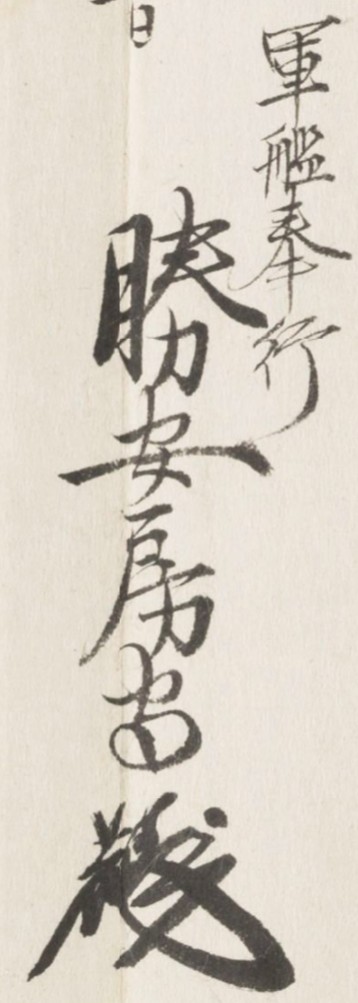 軍艦奉行
日
勝安房守